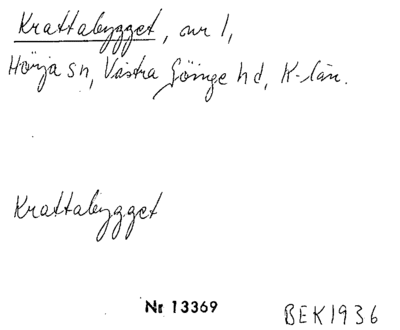 Krattabygget, nr 1,
Hörja sn, Västra Göinge hd, K-län.
Krattabygget
Nr 13369
BEK1936